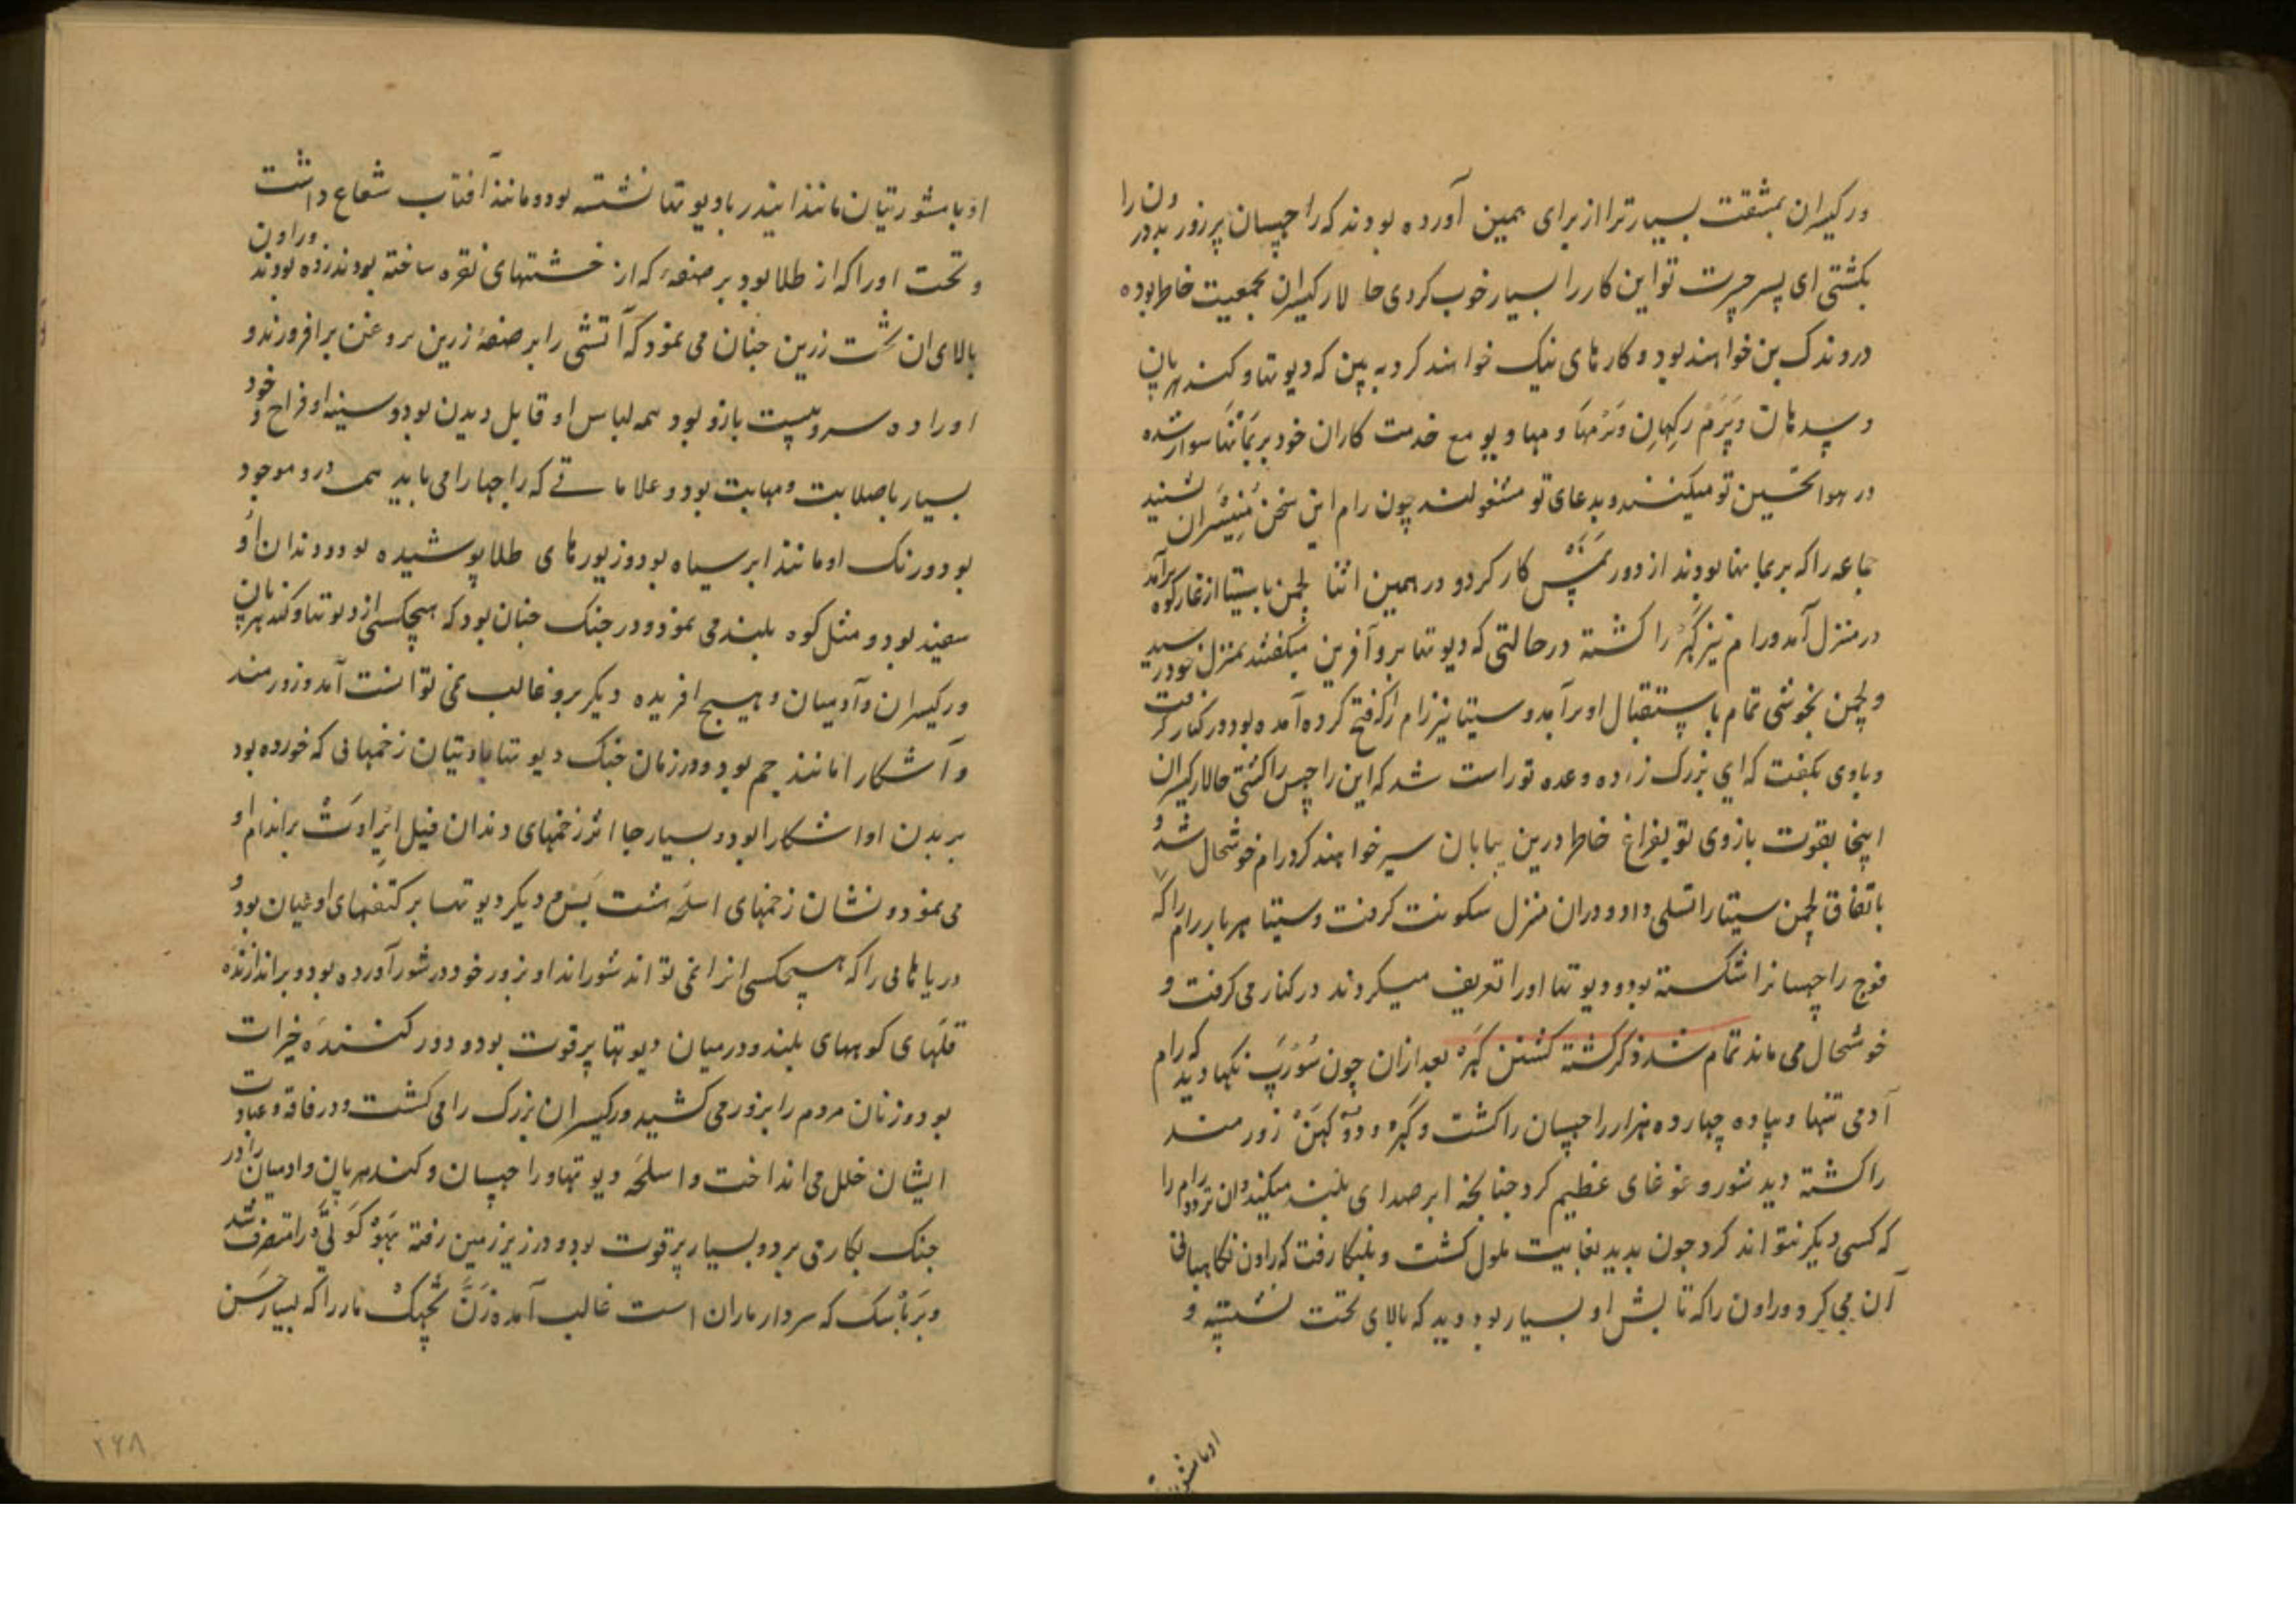 ورکیسران بمشقت بسیار ترا از برای همین آورده بودند که راچهسان پر زور بد درون را
بکشتی ای پسر جسرت تو این کار را بسیار خوب کردی حالا رکیسران بجمعیت خاطر بوده
در وندک بن خواهند بود و کارهای نیک خواهند کرد به بین که دیوتها و کندهربان
و سدهان و پرم رکهان و برمها و مهادیو مع خدمت کاران خود بر بمانها سوار شده
در هوا تحسین تو میکنند و بدعای تو مشغولند چون رام این سخن منیسران شنید
جماعه را که بر بمانها بودند از دور نمسکار کرد و در همین اثنا لچمن با سیتا از غار کوه برآمد
در منزل آمد و رام نیز کهر را کشته در حالتی که دیوتها برو آفرین میکفتند بمنزل خود رسید
و لچمن بخوشی تمام باستقبال او برآمد و سیتا نیز رام را که فتح کرده آمده بود در کنار گرفت
و باوی بکفت که ای بزرک زاده وعده تو راست شد که این راچهس را کشتی حالا رکیسران
اینجا بقوت بازوی تو بفراغ خاطر درین بیابان سیر خواهند کرد رام خوشحال شد و
باتفاق لچمن سیتا را تسلی داد و دران منزل سکونت کرفت و سیتا هر بار رام را که
فوج راچهسانرا شکسته بود و دیوتها او را تعریف میکردند در کنار می کرفت و
خوشحال می ماند تمام شد ذکر کشته کشتن کهر بعد ازان چون سورپ نکها دید که رام
آدمی تنها و پیاده چهارده هزار راچهسان را کشت و کهر و دوکهن زورمند
را کشته دید شور و غوغای عظیم کرد چنانچه ابر صدای بلند میکند و ان تردد رام را
که کسی دیکر نتواند کرد چون بدید بغایت ملول کشت و بلنکا رفت که راون نکاهبانی
آن می کرد و راون را که تابش او بسیار بود دید که بالای تخت نشسته و
اوبامشور
او بامشورتیان مانند ایندر با دیوتها نشسته بود و مانند آفتاب شعاع داشت
و تخت او را که از طلا بود بر صفهٔ که از خشتهای نقره ساخته بودند زده بودند و راون
بالای ان تخت زرین چنان می نمود که آتشی را بر صفهٔ زرین بروغن برافروزند و
او را ده سر و بیست بازو بود همه لباس او قابل دیدن بود و سینه او فراخ و خود
بسیار باصلابت و مهابت بود و علاماتے که راجها را می باید همه درو موجود
بود و رنک او مانند ابر سیاه بود و زیورهای طلا پوشیده بود و دندان او
سفید بود و مثل کوه بلند می نمود و در جنک چنان بود که هیچکس از دیوتها و کندهربان
ورکیسران و آدمیان و هیچ افریده دیکر برو غالب نمی توانست آمد و زورمند
و آشکارا مانند جم بود و در زمان جنک دیوتها با دیتیان زخمهائی که خورده بود
بر بدن او اشکارا بود و بسیار جا اثر زخمهای دندان فیل ایراوت بر اندام او
می نمود و نشان زخمهای اسلحه شت بسم دیکر دیوتها بر کتفهای او عیان بود و
دریاهائی را که هیچکس انرا نمی تواند شوراند او بزور خود در شور آورده بود و براندازنده
قلهای کوههای بلند و در میان دیوتها پر قوت بود و دور کنندهٔ خیرات
بود و زنان مردم را بزور می کشید و رکیسران بزرک را می کشت و در فاقه و عبادت
ایشان خلل می انداخت و اسلحه دیوتها و راچهسان و کندهربان و ادمیان را در
جنک بکار می برد و بسیار پر قوت بود و در زیر زمین رفته بهوکوتی را متصرف شد
و بر باسک که سردار ماران است غالب آمده زن تچهک مار را که بسیار حسن
۲۶۸